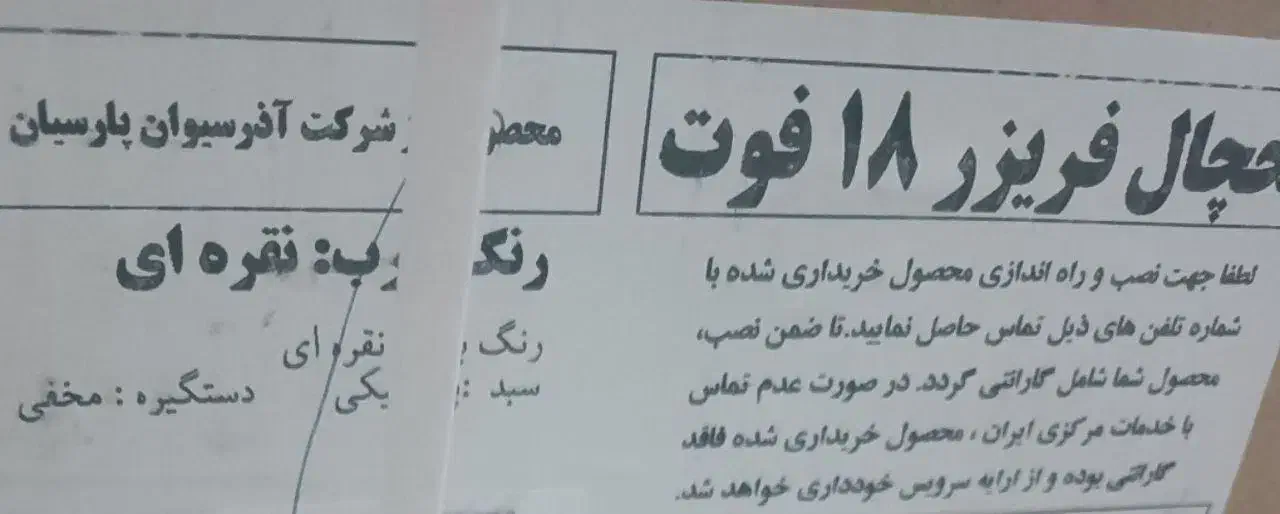 یخچال فریزر ۱۸ فوت
لطفا جهت نصب و راه اندازی محصول خریداری شده با
شماره تلفن های ذیل تماس حاصل نمایید.تا ضمن نصب،
محصول شما شامل گارانتی گردد. در صورت عدم تماس
با خدمات مرکزی ایران ، محصول خریداری شده فاقد
گارانتی بوده و از ارایه سرویس خودداری خواهد شد.
شرکت آذرسیوان پارسیان
رنگ : نقره ای
رنگ نقره ای
سبد : دستگیره : مخفی